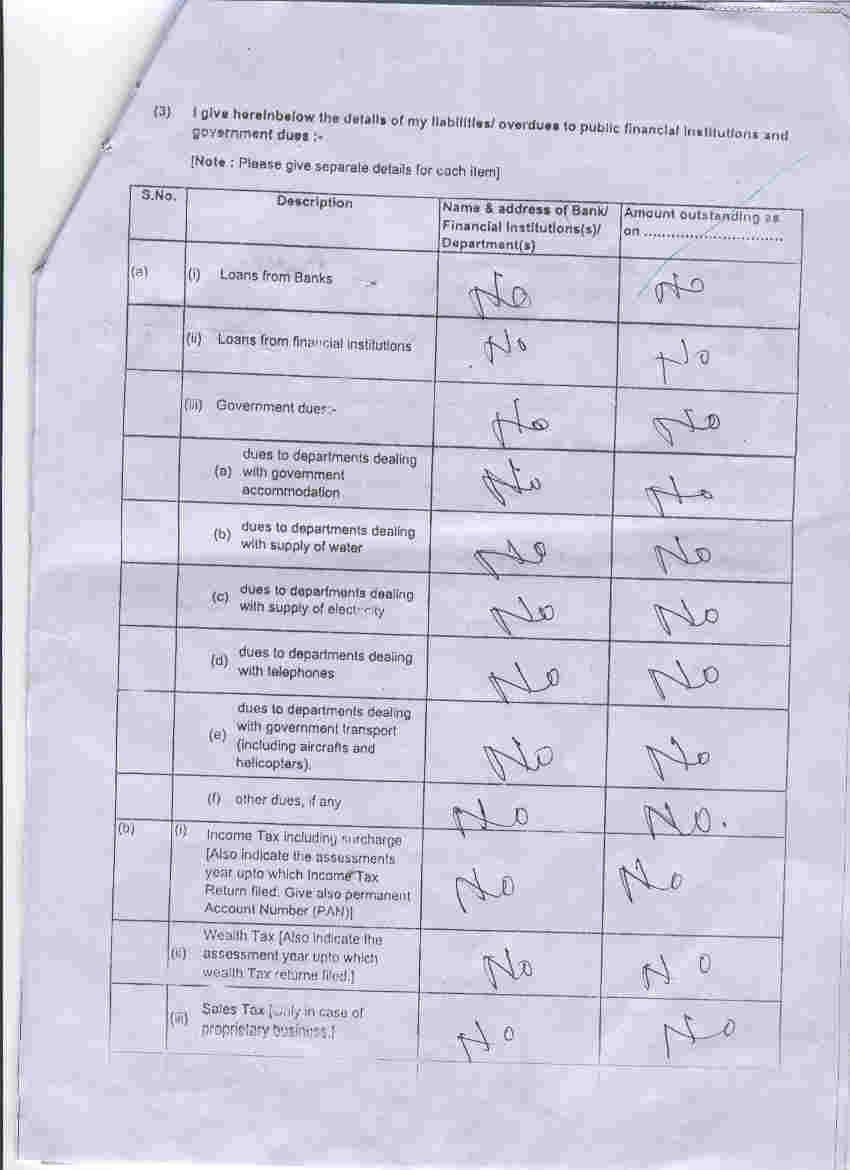 (3) I give hereinbelow the details of my liabilities/ overdues to public financial institutions and
government dues :-
[Note : Please give separate details for each item]
S.No.
Description
Name & address of Bank/
Financial Institutions(s)/
Department(s)
Amount outstanding as
on ..............................
(a) (i) Loans from Banks No No
(ii) Loans from financial institutions No No
(iii) Government dues:- No No
dues to departments dealing
(a) with government No No
accommodation
(b) dues to departments dealing
with supply of water No No
(c) dues to departments dealing
with supply of electricity No No
(d) dues to departments dealing
with telephones No No
dues to departments dealing
(e) with government transport
(including aircrafts and No No
helicopters).
(f) other dues, if any No No.
(b) (i) Income Tax including surcharge
[Also indicate the assessments
year upto which Income Tax No No
Return filed. Give also permanent
Account Number (PAN)]
Wealth Tax [Also indicate the
(ii) assessment year upto which No No
wealth Tax returne filed.]
(iii) Sales Tax [only in case of
proprietary business.] No No